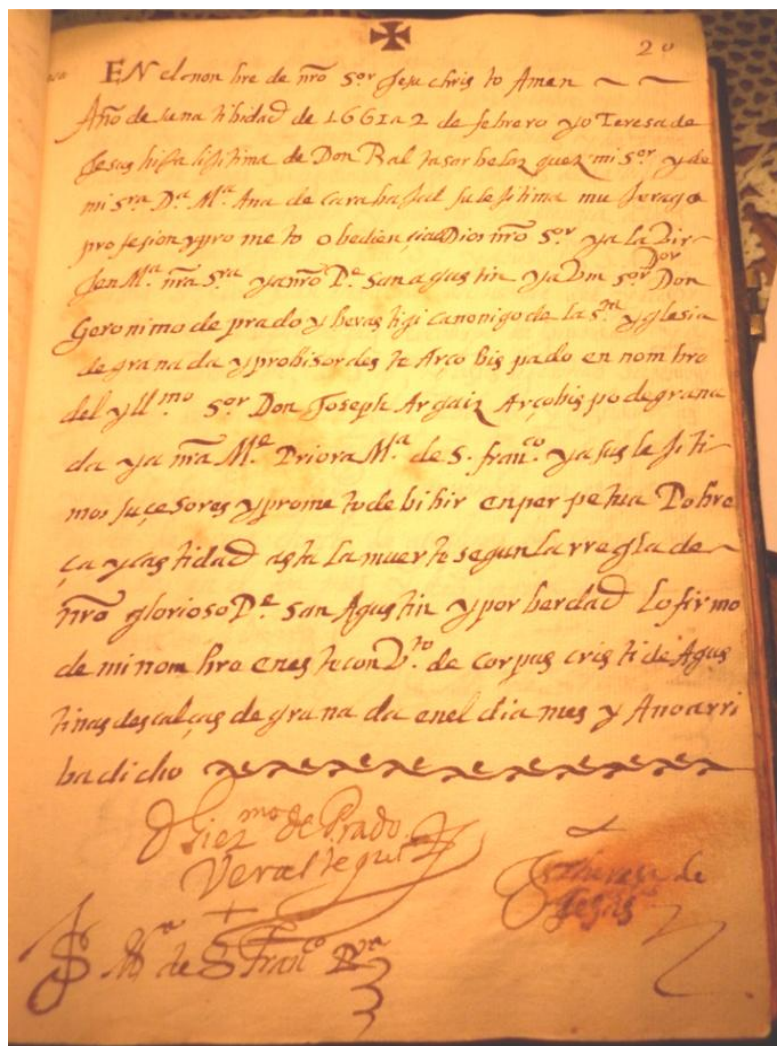 20
EN el non bre de nr̃o Sor Jesu chris to Amen
Año de su na tibidad de 1661 a 2 de febrero yo Teresa de
Jesus hija lijitima de Don Bal tasar belaz quez mi Sor y de
mi sra Da Ma. Ana de cara bajal su lejitima mu jer ago
profesion y pro me to obediençia a Dios nr̃o Sor y a la Bir
jen Ma. nr̃a Sra y a nr̃o Pe San agustin y a Vm Sor Dor Don
Geronimo de prado y beras tigi canonigo de la Sta yglesia
de grana da y probisor des te Arço bis pado en nom bre
del yllmo Sor Don Joseph Argaiz Arçobis po de grana
da y a nr̃a Me. Priora Ma. de S. franco. y a sus le jiti
mos suçesores y prome to de bibir en per petua Pobre
ça y cas tidad asta la muerte segun la rregla de
nr̃o glorioso Pe. San Agustin y por berdad lo firmo
de mi nom bre en es te conVto. de corpus cris ti de Agus
tinas descalças de grana da en el dia mes y Año arri
ba dicho
Giermo de Prado
Verastegui
Theresa de
Jesus
Ma de S Franco Pra